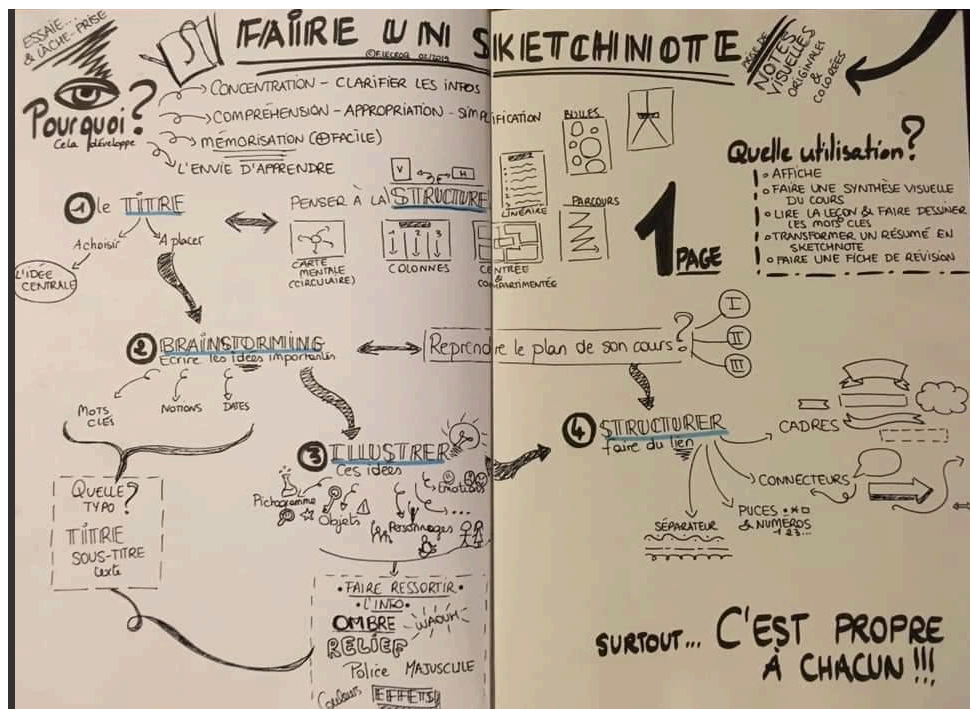 ESSAIE...
& LÂCHE-PRISE
FAIRE UN SKETCHNOTE
PAGE DE
NOTES
VISUELLES
ORIGINALES
&
COLORÉES
Pourquoi?
Cela développe
CONCENTRATION - CLARIFIER LES INFOS
COMPRÉHENSION - APPROPRIATION - SIMPLIFICATION
MÉMORISATION (⊕ FACILE)
L'ENVIE D'APPRENDRE
1 le TITRE
A choisir
A placer
L'IDÉE
CENTRALE
PENSER À LA STRUCTURE
V
H
CARTE
MENTALE
(CIRCULAIRE)
1 2 3
COLONNES
CENTRÉE
&
COMPARTIMENTÉE
LINÉAIRE
BULLES
PARCOURS
1 PAGE
Quelle utilisation?
AFFICHE
FAIRE UNE SYNTHÈSE VISUELLE
DU COURS
LIRE LA LEÇON & FAIRE DESSINER
LES MOTS CLÉS
TRANSFORMER UN RÉSUMÉ EN
SKETCHNOTE
FAIRE UNE FICHE DE RÉVISION
2 BRAINSTORMING
Ecrire les idées importantes
MOTS
CLÉS
NOTIONS
DATES
Reprendre le plan de son cours?
I
II
III
QUELLE
TYPO?
TITRE
SOUS-TITRE
texte
3 ILLUSTRER
Ces idées
Pictogramme
Objets
Personnages
Emotions
...
FAIRE RESSORTIR
L'INFO
OMBRE
WAOUH
RELIEF
Police MAJUSCULE
Couleurs EFFETS
4 STRUCTURER
faire du lien
CADRES
CONNECTEURS
PUCES
& NUMEROS
1 2 3...
SÉPARATEUR
SURTOUT... C'EST PROPRE
À CHACUN !!!